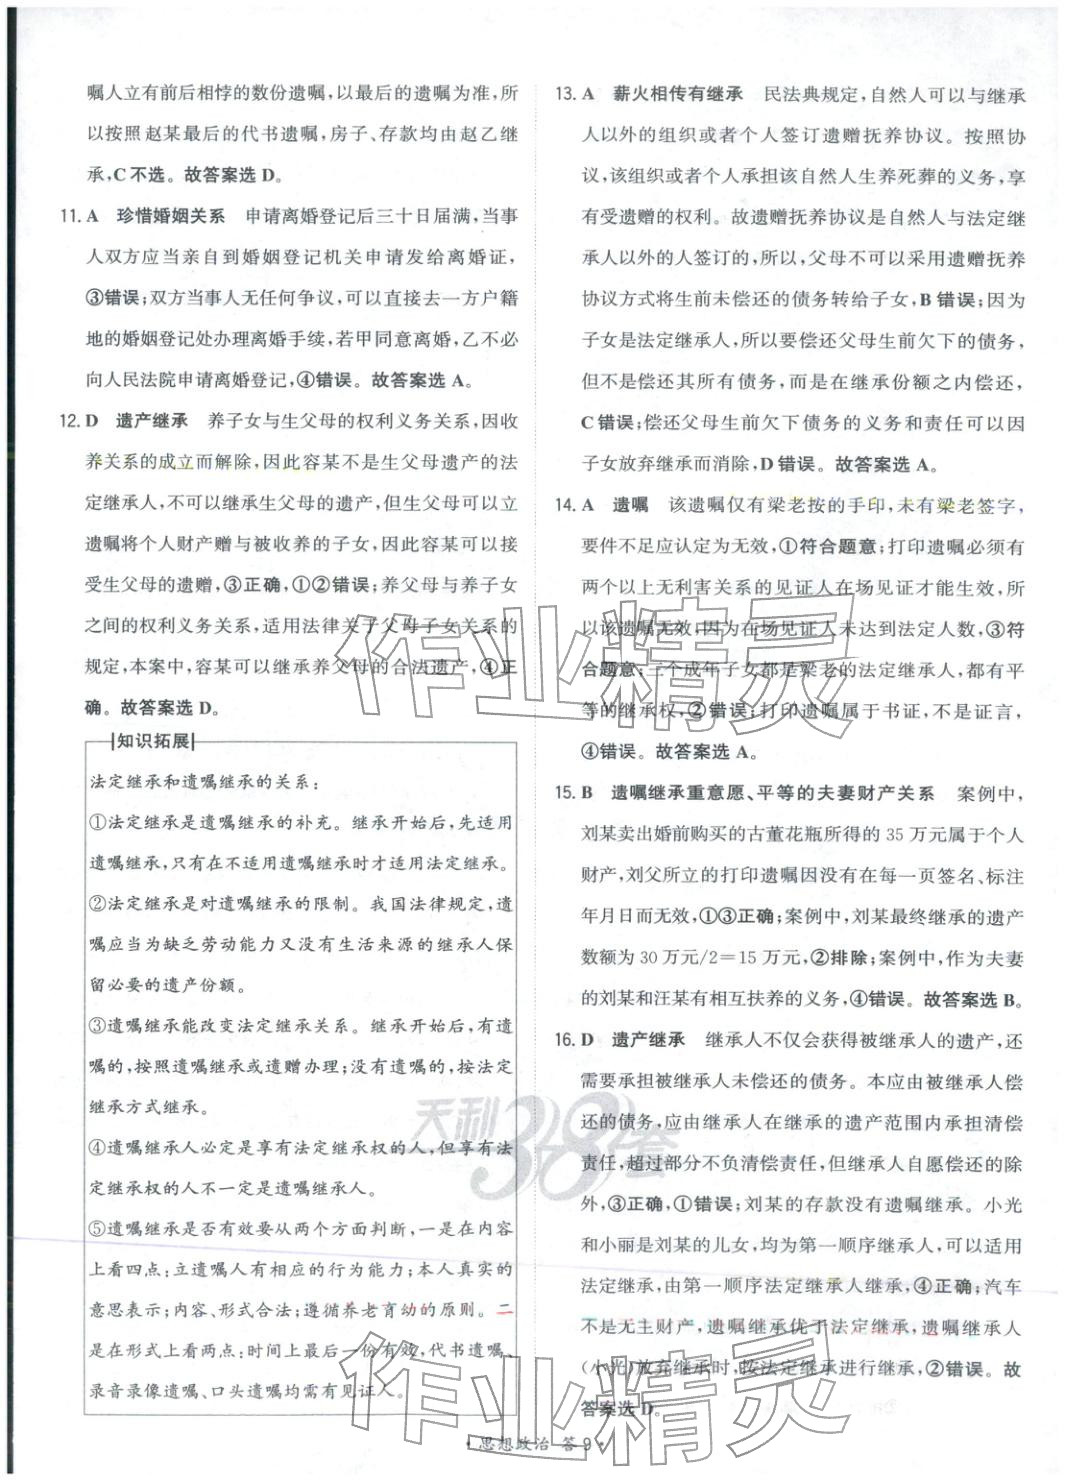 嘱人立有前后相悖的数份遗嘱,以最后的遗嘱为准,所
以按照赵某最后的代书遗嘱,房子、存款均由赵乙继
承,C不选。故答案选D。
11. A 珍惜婚姻关系 申请离婚登记后三十日届满,当事
人双方应当亲自到婚姻登记机关申请发给离婚证,
③错误;双方当事人无任何争议,可以直接去一方户籍
地的婚姻登记处办理离婚手续,若甲同意离婚,乙不必
向人民法院申请离婚登记,④错误。故答案选A。
12. D 遗产继承 养子女与生父母的权利义务关系,因收
养关系的成立而解除,因此容某不是生父母遗产的法
定继承人,不可以继承生父母的遗产,但生父母可以立
遗嘱将个人财产赠与被收养的子女,因此容某可以接
受生父母的遗赠,③正确,①②错误;养父母与养子女
之间的权利义务关系,适用法律关于父母子女关系的
规定,本案中,容某可以继承养父母的合法遗产,④正
确。故答案选D。
知识拓展
法定继承和遗嘱继承的关系:
①法定继承是遗嘱继承的补充。继承开始后,先适用
遗嘱继承,只有在不适用遗嘱继承时才适用法定继承。
②法定继承是对遗嘱继承的限制。我国法律规定,遗
嘱应当为缺乏劳动能力又没有生活来源的继承人保
留必要的遗产份额。
③遗嘱继承能改变法定继承关系。继承开始后,有遗
嘱的,按照遗嘱继承或遗赠办理;没有遗嘱的,按法定
继承方式继承。
④遗嘱继承人必定是享有法定继承权的人,但享有法
定继承权的人不一定是遗嘱继承人。
⑤遗嘱继承是否有效要从两个方面判断,一是在内容
上看四点:立遗嘱人有相应的行为能力;本人真实的
意思表示;内容、形式合法;遵循养老育幼的原则。二
是在形式上看两点:时间上最后一份有效,代书遗嘱、
录音录像遗嘱、口头遗嘱均需有见证人。
13. A 薪火相传有继承 民法典规定,自然人可以与继承
人以外的组织或者个人签订遗赠抚养协议。按照协
议,该组织或者个人承担该自然人生养死葬的义务,享
有受遗赠的权利。故遗赠抚养协议是自然人与法定继
承人以外的人签订的,所以,父母不可以采用遗赠抚养
协议方式将生前未偿还的债务转给子女,B错误;因为
子女是法定继承人,所以要偿还父母生前欠下的债务,
但不是偿还其所有债务,而是在继承份额之内偿还,
C错误;偿还父母生前欠下债务的义务和责任可以因
子女放弃继承而消除,D错误。故答案选A。
14. A 遗嘱 该遗嘱仅有梁老按的手印,未有梁老签字,
要件不足应认定为无效,①符合题意;打印遗嘱必须有
两个以上无利害关系的见证人在场见证才能生效,所
以该遗嘱无效,因为在场见证人未达到法定人数,③符
合题意;三个成年子女都是梁老的法定继承人,都有平
等的继承权,②错误;打印遗嘱属于书证,不是证言,
④错误。故答案选A。
15. B 遗嘱继承重意愿、平等的夫妻财产关系 案例中,
刘某卖出婚前购买的古董花瓶所得的35万元属于个人
财产,刘父所立的打印遗嘱因没有在每一页签名、标注
年月日而无效,①③正确;案例中,刘某最终继承的遗产
数额为30万元/2=15万元,②排除;案例中,作为夫妻
的刘某和汪某有相互扶养的义务,④错误。故答案选B。
16. D 遗产继承 继承人不仅会获得被继承人的遗产,还
需要承担被继承人未偿还的债务。本应由被继承人偿
还的债务,应由继承人在继承的遗产范围内承担清偿
责任,超过部分不负清偿责任,但继承人自愿偿还的除
外,③正确,①错误;刘某的存款没有遗嘱继承。小光
和小丽是刘某的儿女,均为第一顺序继承人,可以适用
法定继承,由第一顺序法定继承人继承,④正确;汽车
不是无主财产,遗嘱继承优于法定继承,遗嘱继承人
(小光)放弃继承时,按法定继承进行继承,②错误。故
答案选D。
作业精灵
天利38套
作业精灵
·思想政治 答9·